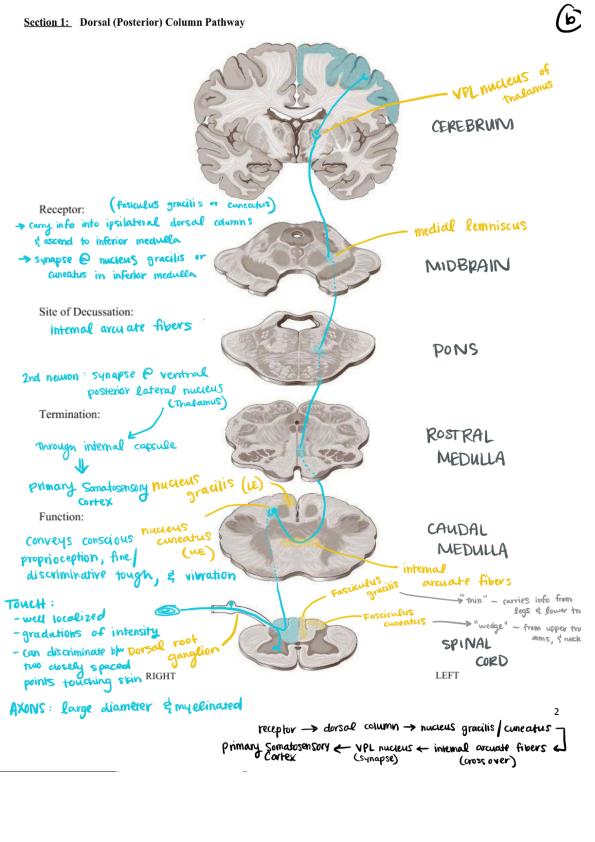 Section 1: Dorsal (Posterior) Column Pathway
6
VPL nucleus of
thalamus
CEREBRUM
Receptor: (fasiculus gracilis or cuneatus)
→ carry info into ipsilateral dorsal columns
& ascend to inferior medulla
→ synapse @ nucleus gracilis or
cuneatus in inferior medulla
medial lemniscus
MIDBRAIN
Site of Decussation:
internal arcuate fibers
PONS
2nd neuron: synapse @ ventral
posterior lateral nucleus
(Thalamus)
Termination:
through internal capsule
primary Somatosensory
cortex
ROSTRAL
MEDULLA
nucleus
gracilis (LE)
Function:
nucleus
cuneatus
(UE)
conveys conscious
proprioception, fine/
discriminative tough, & vibration
CAUDAL
MEDULLA
internal
arcuate fibers
Fasciculus
gracilis
"thin" - carries info from
legs & lower tru
Fasciculus
cuneatus
"wedge" - from upper tru
arms, & neck
TOUCH:
- well localized
- gradations of intensity
- can discriminate b/w
two closely spaced
points touching skin
Dorsal root
ganglion
SPINAL
CORD
RIGHT
LEFT
AXONS: large diameter & myelinated
2
receptor → dorsal column → nucleus gracilis/cuneatus
primary Somatosensory ← VPL nucleus ← internal arcuate fibers
cortex (synapse) (cross over)